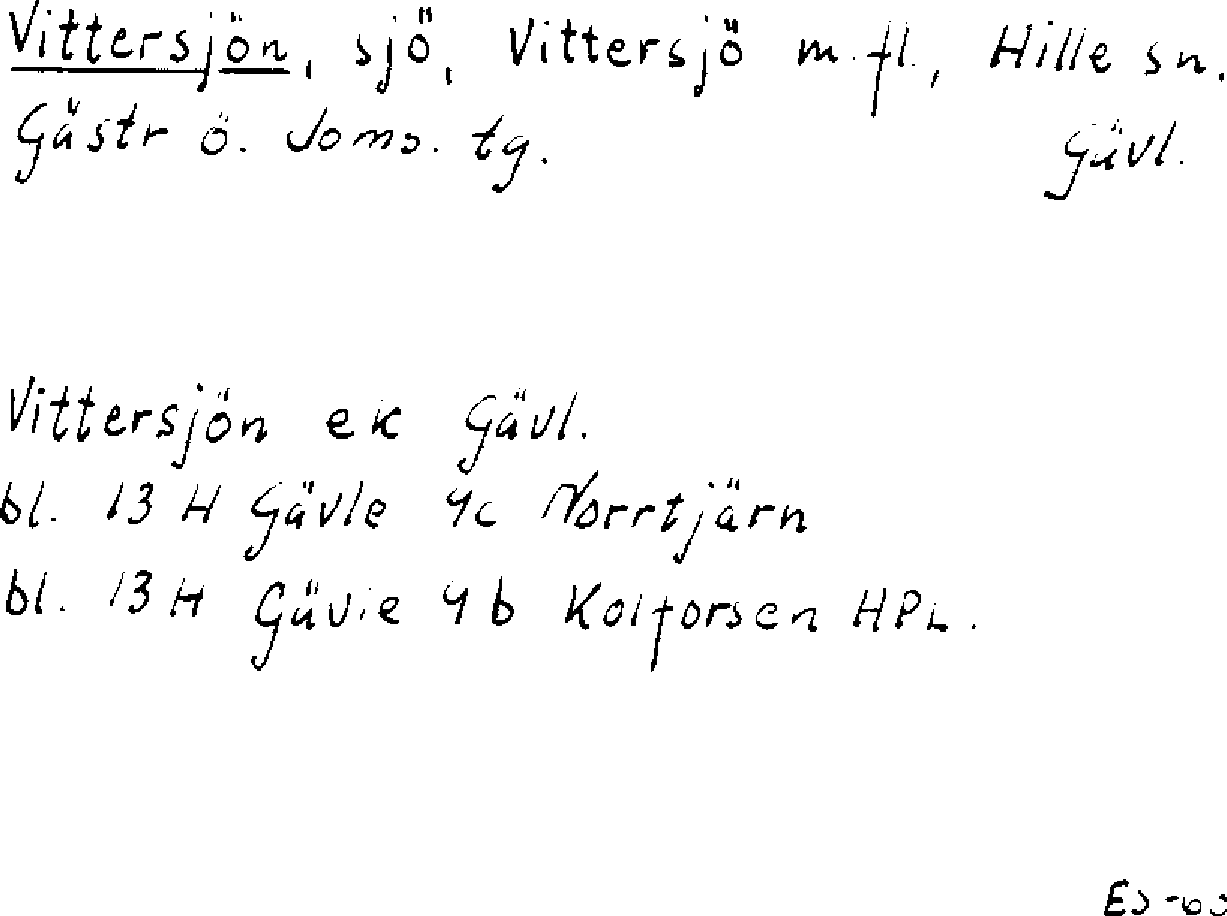 Vittersjön, sjö, Vittersjö m. fl., Hille sn.
Gästr ö. doms. tg. Gävl.
Vittersjön ek Gävl.
bl. 13 H Gävle 4c Norrtjärn
bl. 13 H Gävle 4 b Kolforsen HPL.